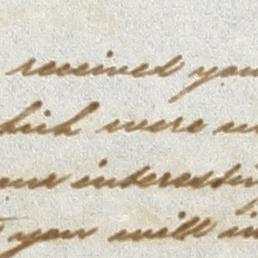 received you
which were
interestin
you will in